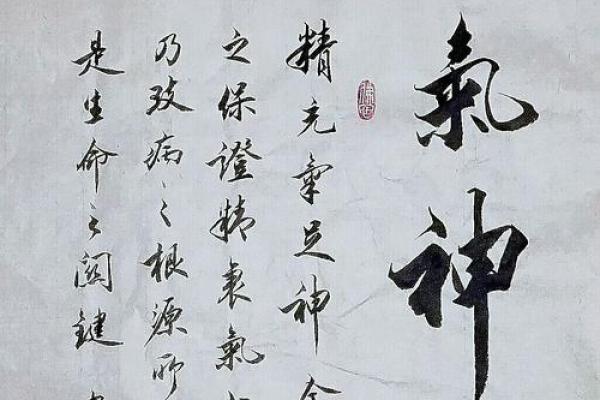 氣神
精充氣足神
之保證精衰氣
乃致病之根源所
是生命之關鍵